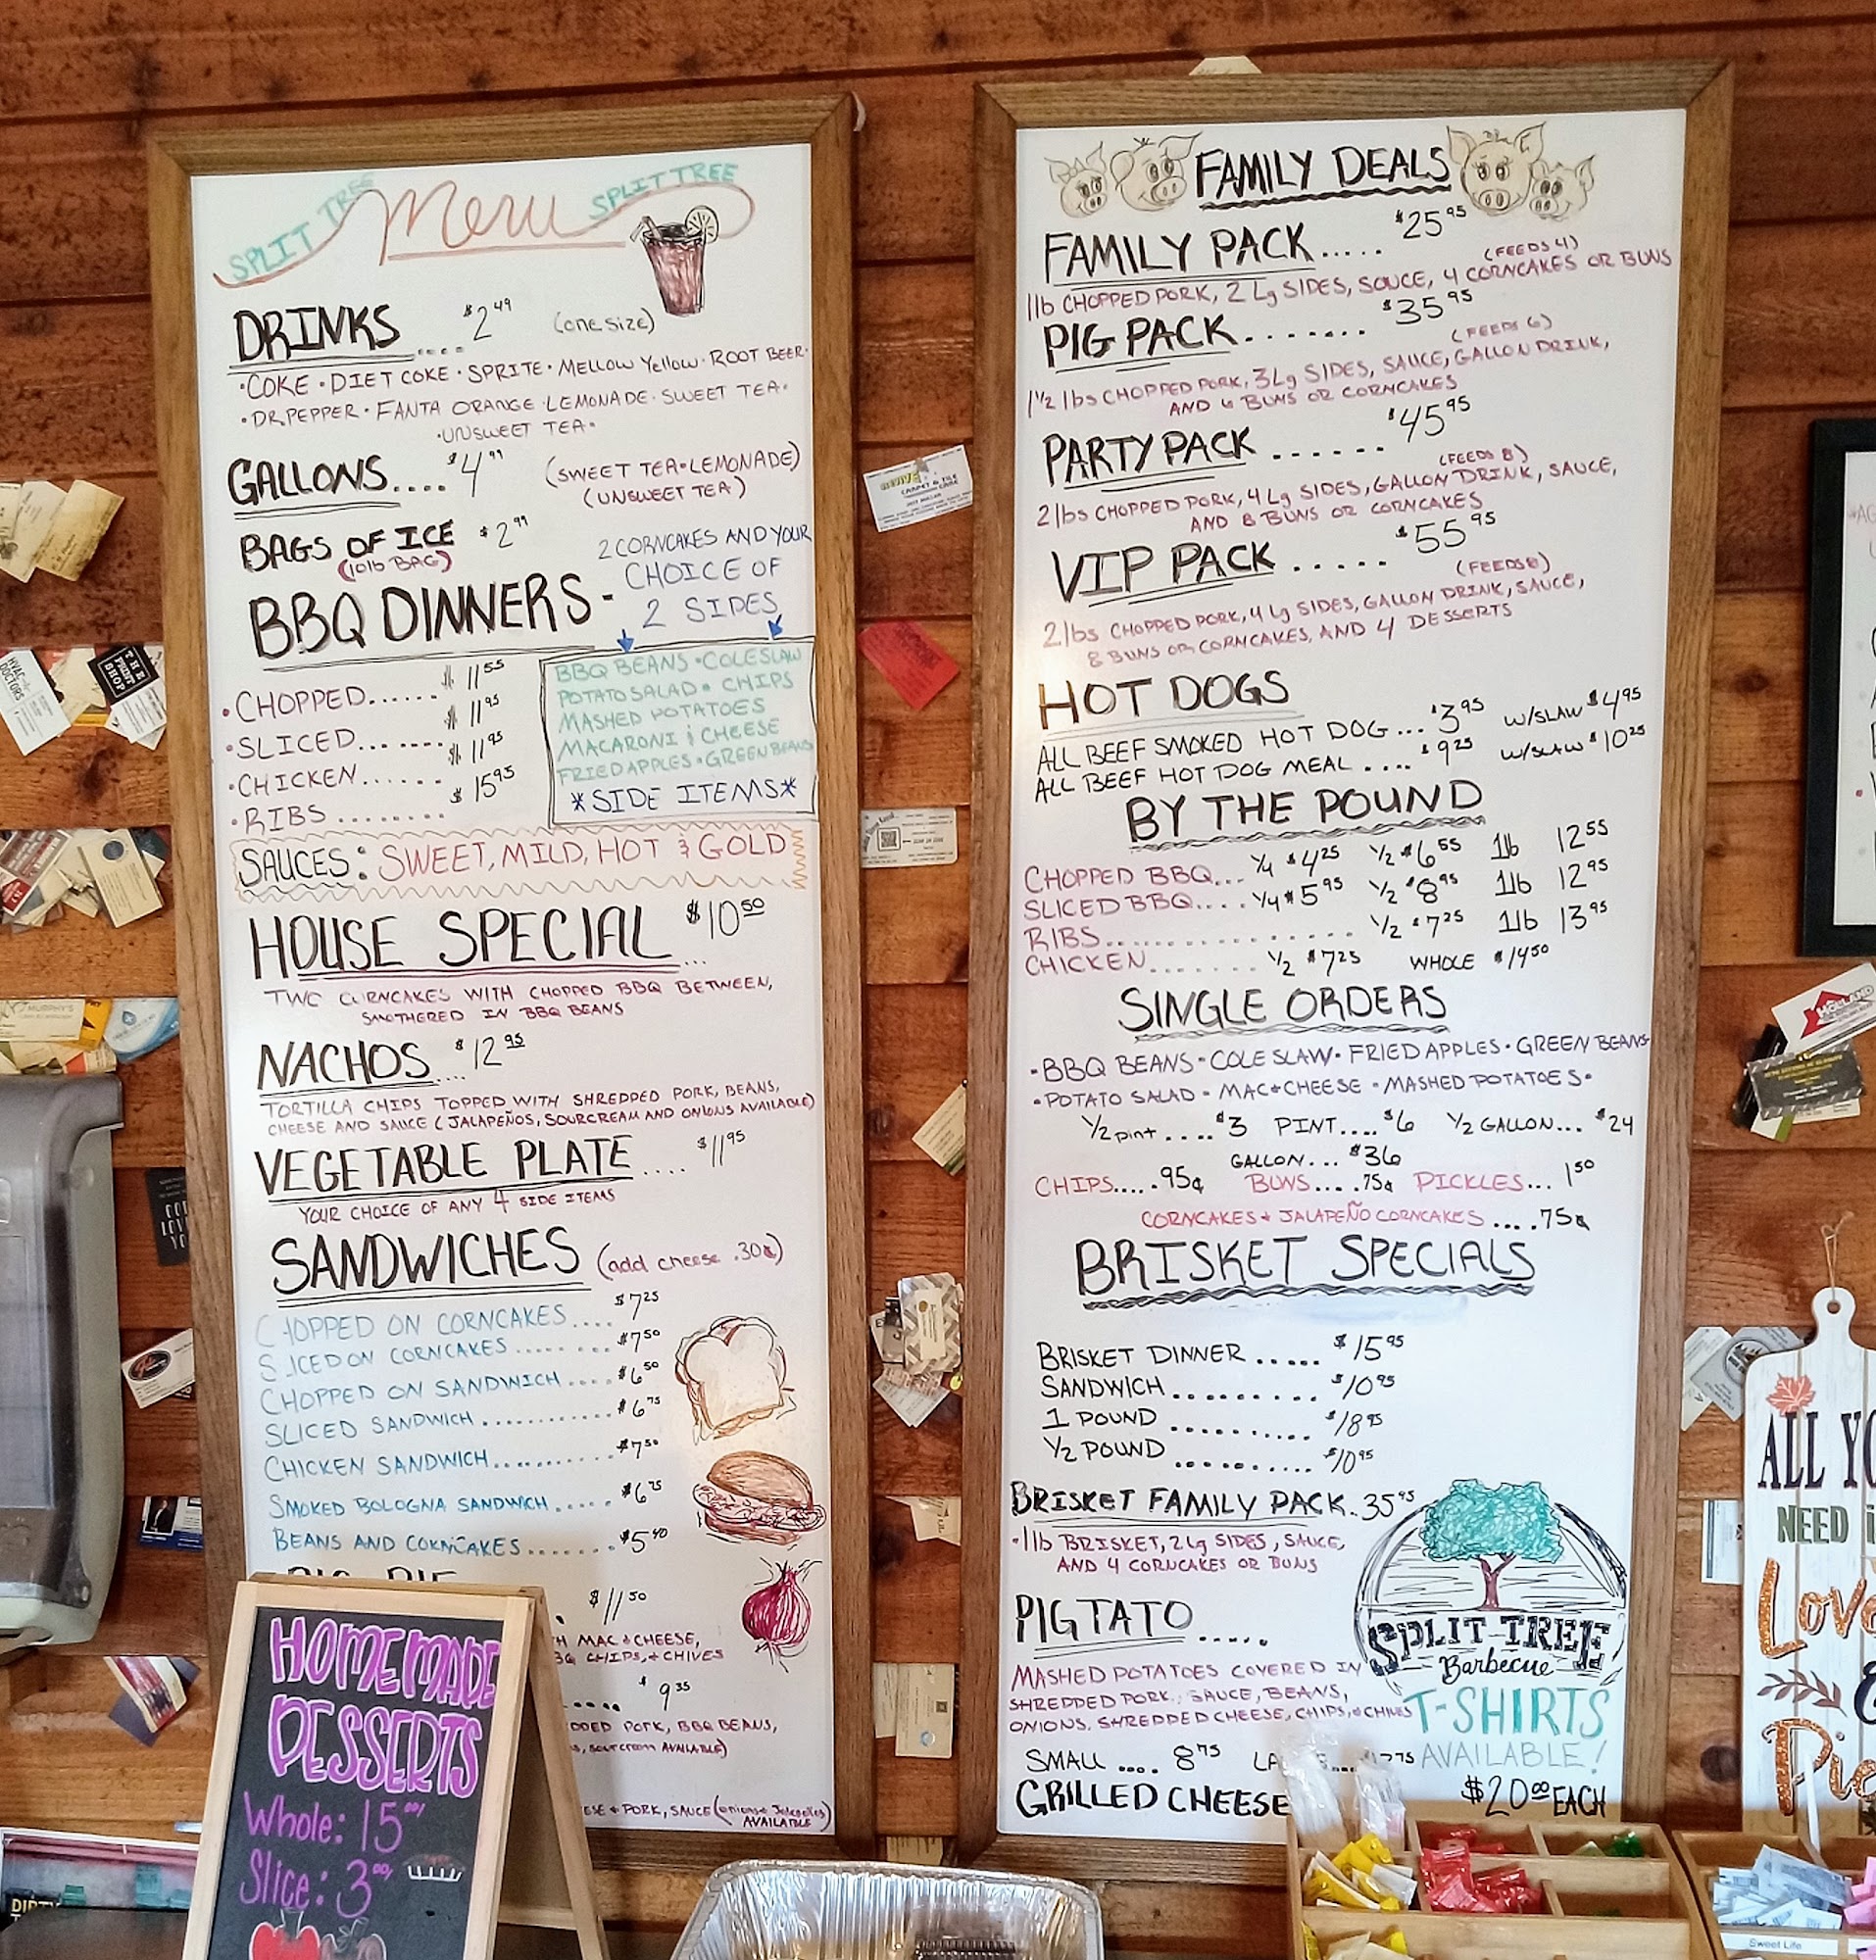 SPLIT TREE Menu SPLIT TREE
DRINKS.... $2.49 (one size)
·COKE·DIET COKE·SPRITE·MELLOW YELLOW·ROOT BEER·
·DR.PEPPER·FANTA ORANGE·LEMONADE·SWEET TEA·
·UNSWEET TEA·
GALLONS.... $4.99 (SWEET TEA·LEMONADE)
(UNSWEET TEA)
BAGS OF ICE $2.99
(10lb BAG)
BBQ DINNERS - 2 CORNCAKES AND YOUR
CHOICE OF
2 SIDES
·CHOPPED...... $11.55
·SLICED....... $11.95
·CHICKEN...... $11.95
·RIBS ........ $15.95
BBQ BEANS·COLESLAW
POTATO SALAD·CHIPS
MASHED POTATOES
MACARONI & CHEESE
FRIED APPLES·GREEN BEANS
*SIDE ITEMS*
SAUCES: SWEET, MILD, HOT & GOLD
HOUSE SPECIAL... $10.50
TWO CORNCAKES WITH CHOPPED BBQ BETWEEN,
SMOTHERED IN BBQ BEANS
NACHOS.... $12.95
TORTILLA CHIPS TOPPED WITH SHREDDED PORK, BEANS,
CHEESE AND SAUCE (JALAPEÑOS, SOURCREAM AND ONIONS AVAILABLE)
VEGETABLE PLATE .... $11.95
YOUR CHOICE OF ANY 4 SIDE ITEMS
SANDWICHES (add cheese .30¢)
CHOPPED ON CORNCAKES.... $7.25
SLICED ON CORNCAKES...... $7.50
CHOPPED ON SANDWICH.... $6.50
SLICED SANDWICH............ $6.75
CHICKEN SANDWICH........... $7.50
SMOKED BOLOGNA SANDWICH..... $6.75
BEANS AND CORNCAKES........ $5.40
$11.50
MAC & CHEESE,
CHIPS, & CHIVES
.... 9.35
PORK, BBQ BEANS,
SOURCREAM AVAILABLE)
& PORK, SAUCE (onions & Jalapeños
AVAILABLE)
HOMEMADE
DESSERTS
Whole: 15.00
Slice: 3.00
FAMILY DEALS
FAMILY PACK..... $25.95
(FEEDS 4)
1lb CHOPPED PORK, 2 Lg SIDES, SAUCE, 4 CORNCAKES OR BUNS
PIG PACK....... $35.95
(FEEDS 6)
1½ lbs CHOPPED PORK, 3Lg SIDES, SAUCE, GALLON DRINK,
AND 6 BUNS OR CORNCAKES
PARTY PACK ...... $45.95
(FEEDS 8)
2lbs CHOPPED PORK, 4 Lg SIDES, GALLON DRINK, SAUCE,
AND 8 BUNS OR CORNCAKES
VIP PACK ..... $55.95
(FEEDS 8)
2lbs CHOPPED PORK, 4 Lg SIDES, GALLON DRINK, SAUCE,
8 BUNS OR CORNCAKES, AND 4 DESSERTS
HOT DOGS
ALL BEEF SMOKED HOT DOG... $3.95 W/SLAW $4.95
ALL BEEF HOT DOG MEAL .... $9.25 W/SLAW $10.25
BY THE POUND
CHOPPED BBQ... ¼ $4.25 ½ $6.55 1lb 12.55
SLICED BBQ.... ¼ $5.95 ½ $8.95 1lb 12.95
RIBS.............. ½ $7.25 1lb 13.95
CHICKEN....... ½ $7.25 WHOLE $14.50
SINGLE ORDERS
·BBQ BEANS·COLE SLAW·FRIED APPLES·GREEN BEANS
·POTATO SALAD·MAC&CHEESE·MASHED POTATOES·
½ pint .... $3 PINT.... $6 ½ GALLON... $24
GALLON... $36
CHIPS.....95¢ BUNS.....75¢ PICKLES... 1.50
CORNCAKES & JALAPEÑO CORNCAKES .....75¢
BRISKET SPECIALS
BRISKET DINNER ..... $15.95
SANDWICH......... $10.95
1 POUND .......... $18.95
½ POUND .......... $10.95
BRISKET FAMILY PACK. 35.95
·1lb BRISKET, 2 Lg SIDES, SAUCE,
AND 4 CORNCAKES OR BUNS
PIGTATO .....
MASHED POTATOES COVERED IN
SHREDDED PORK, SAUCE, BEANS,
ONIONS, SHREDDED CHEESE, CHIPS, & CHIVES
SMALL .... 8.75
GRILLED CHEESE
SPLIT TREE
Barbecue
T-SHIRTS
AVAILABLE!
$20.00 EACH
THE
PRINT
SHOP
HVAC
DOCTORS
HOLLAND
REVIVE
CARPET & TILE
CARE
MURPHY'S
ALL YO
NEED i
Love
Sweet Life